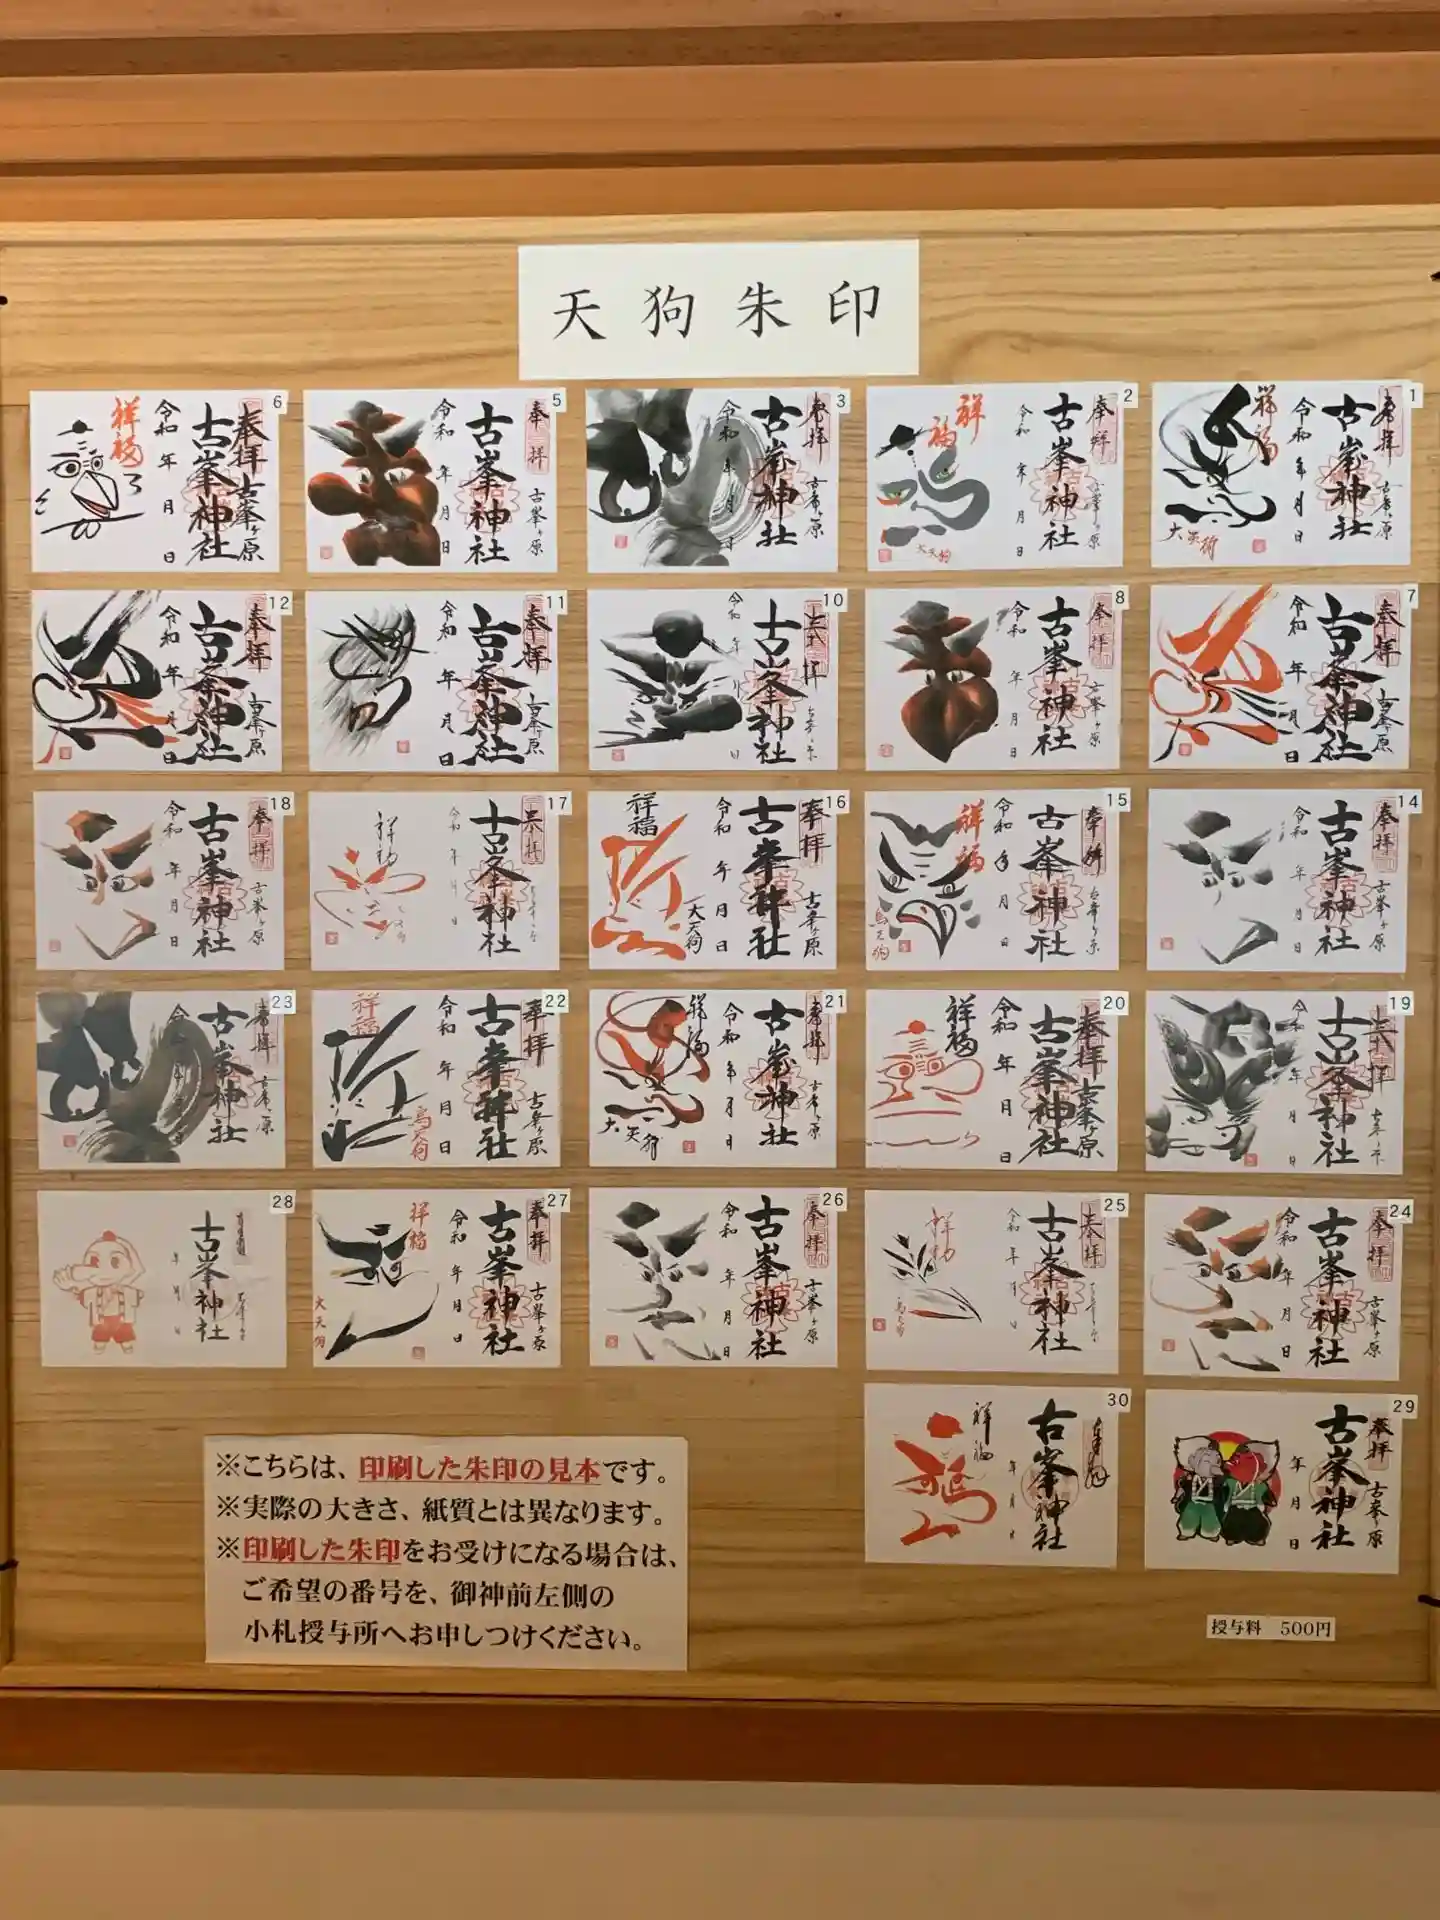 天狗朱印
1
奉拝
古峯ヶ原
古峯神社
令和 年 月 日
祥福
大天狗
2
奉拝
古峯ヶ原
古峯神社
令和 年 月 日
祥福
大天狗
3
奉拝
古峯ヶ原
古峯神社
令和 年 月 日
5
奉拝
古峯ヶ原
古峯神社
令和 年 月 日
6
奉拝 古峯ヶ原
古峯神社
令和 年 月 日
祥福
7
奉拝
古峯ヶ原
古峯神社
令和 年 月 日
8
奉拝
古峯ヶ原
古峯神社
令和 年 月 日
10
古峯神社
令和 年 月 日
11
奉拝
古峯ヶ原
古峯神社
令和 年 月 日
12
奉拝
古峯ヶ原
古峯神社
令和 年 月 日
14
奉拝
古峯ヶ原
古峯神社
令和 年 月 日
15
奉拝
古峯ヶ原
古峯神社
令和 年 月 日
祥福
烏天狗
16
奉拝
古峯ヶ原
古峯神社
令和 年 月 日
祥福
大天狗
17
奉拝
古峯神社
令和 年 月 日
18
奉拝
古峯ヶ原
古峯神社
令和 年 月 日
19
古峯神社
令和 年 月 日
20
奉拝 古峯ヶ原
古峯神社
令和 年 月 日
祥福
21
奉拝
古峯ヶ原
古峯神社
令和 年 月 日
祥福
大天狗
22
奉拝
古峯ヶ原
古峯神社
令和 年 月 日
祥福
烏天狗
23
奉拝
古峯ヶ原
古峯神社
令和 年 月 日
24
奉拝
古峯ヶ原
古峯神社
令和 年 月 日
25
奉拝
古峯神社
令和 年 月 日
26
奉拝
古峯ヶ原
古峯神社
令和 年 月 日
27
奉拝
古峯ヶ原
古峯神社
令和 年 月 日
祥福
大天狗
28
古峯神社
年 月 日
29
奉拝
古峯ヶ原
古峯神社
年 月 日
30
古峯神社
年 月 日
祥福
※こちらは、印刷した朱印の見本です。
※実際の大きさ、紙質とは異なります。
※印刷した朱印をお受けになる場合は、
ご希望の番号を、御神前左側の
小札授与所へお申しつけください。
授与料 500円